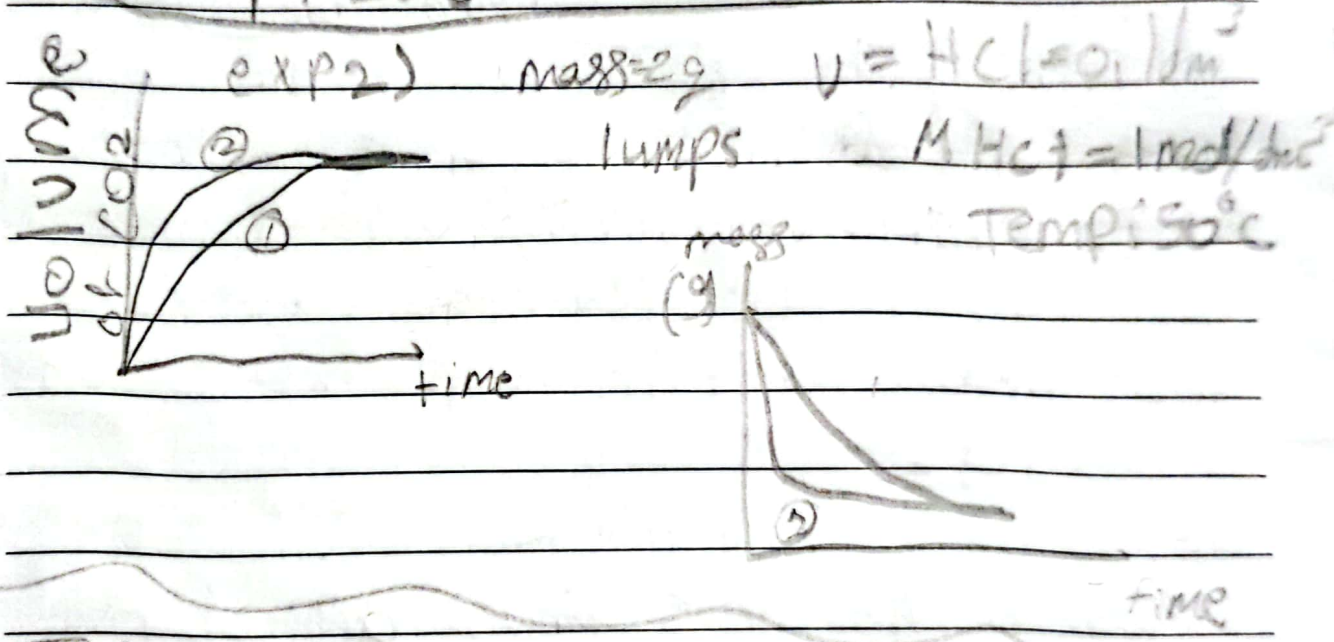 exp2) mass=2g V = HCl=0.1dm³
lumps M HCl = 1mol/dm³
Temp: 50°c
volume
of CO2
②
①
time
mass
(g)
②
time